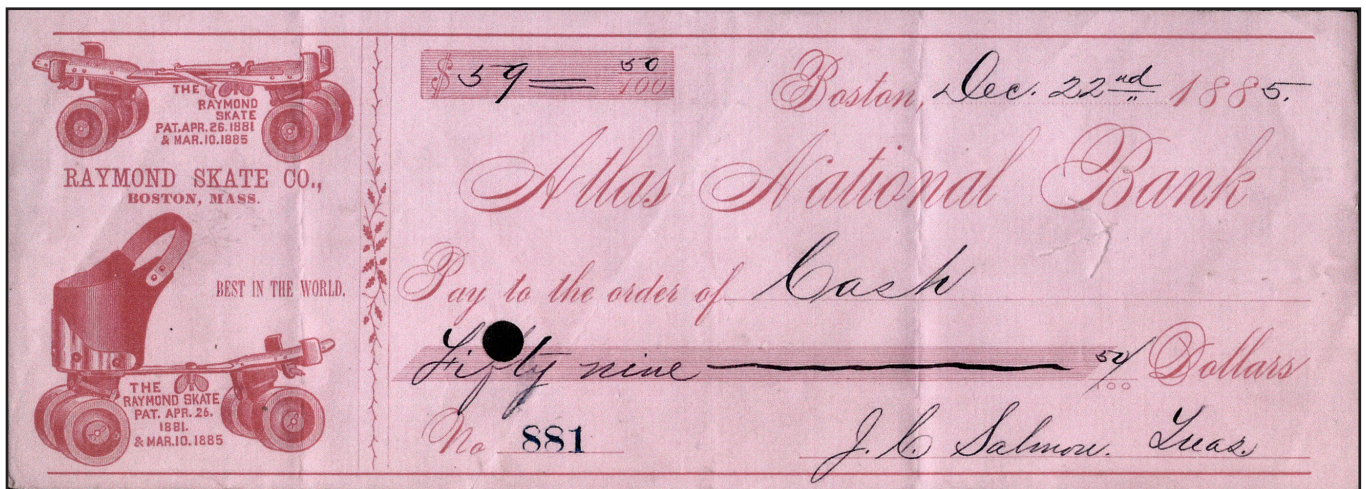 THE
RAYMOND
SKATE
PAT.APR.26.1881
& MAR.10.1885
RAYMOND SKATE CO.,
BOSTON, MASS.
BEST IN THE WORLD.
THE
RAYMOND SKATE
PAT. APR. 26.
1881.
& MAR.10.1885
$ 59 — 50/100
Boston, Dec. 22nd 1885.
Atlas National Bank
Pay to the order of Cash
Fifty nine — 50/100 Dollars
No 881
J. C. Salmon. Treas.